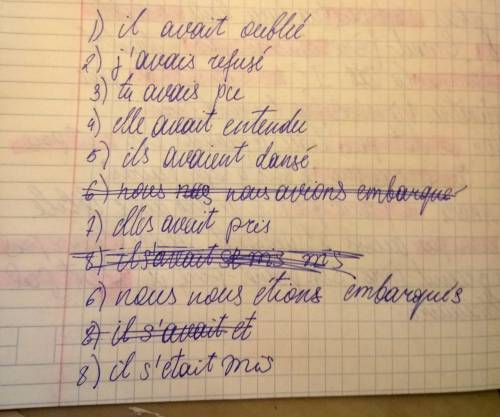 1) il avait oublié
2) j'avais refusé
3) tu avais pu
4) elle avait entendu
5) ils avaient dansé
6) nous nous nous avions embarqué
7) elles avait pris
8) il s'avait se mis mis
6) nous nous étions embarqués
8) il s'avait et
8) il s'était mis